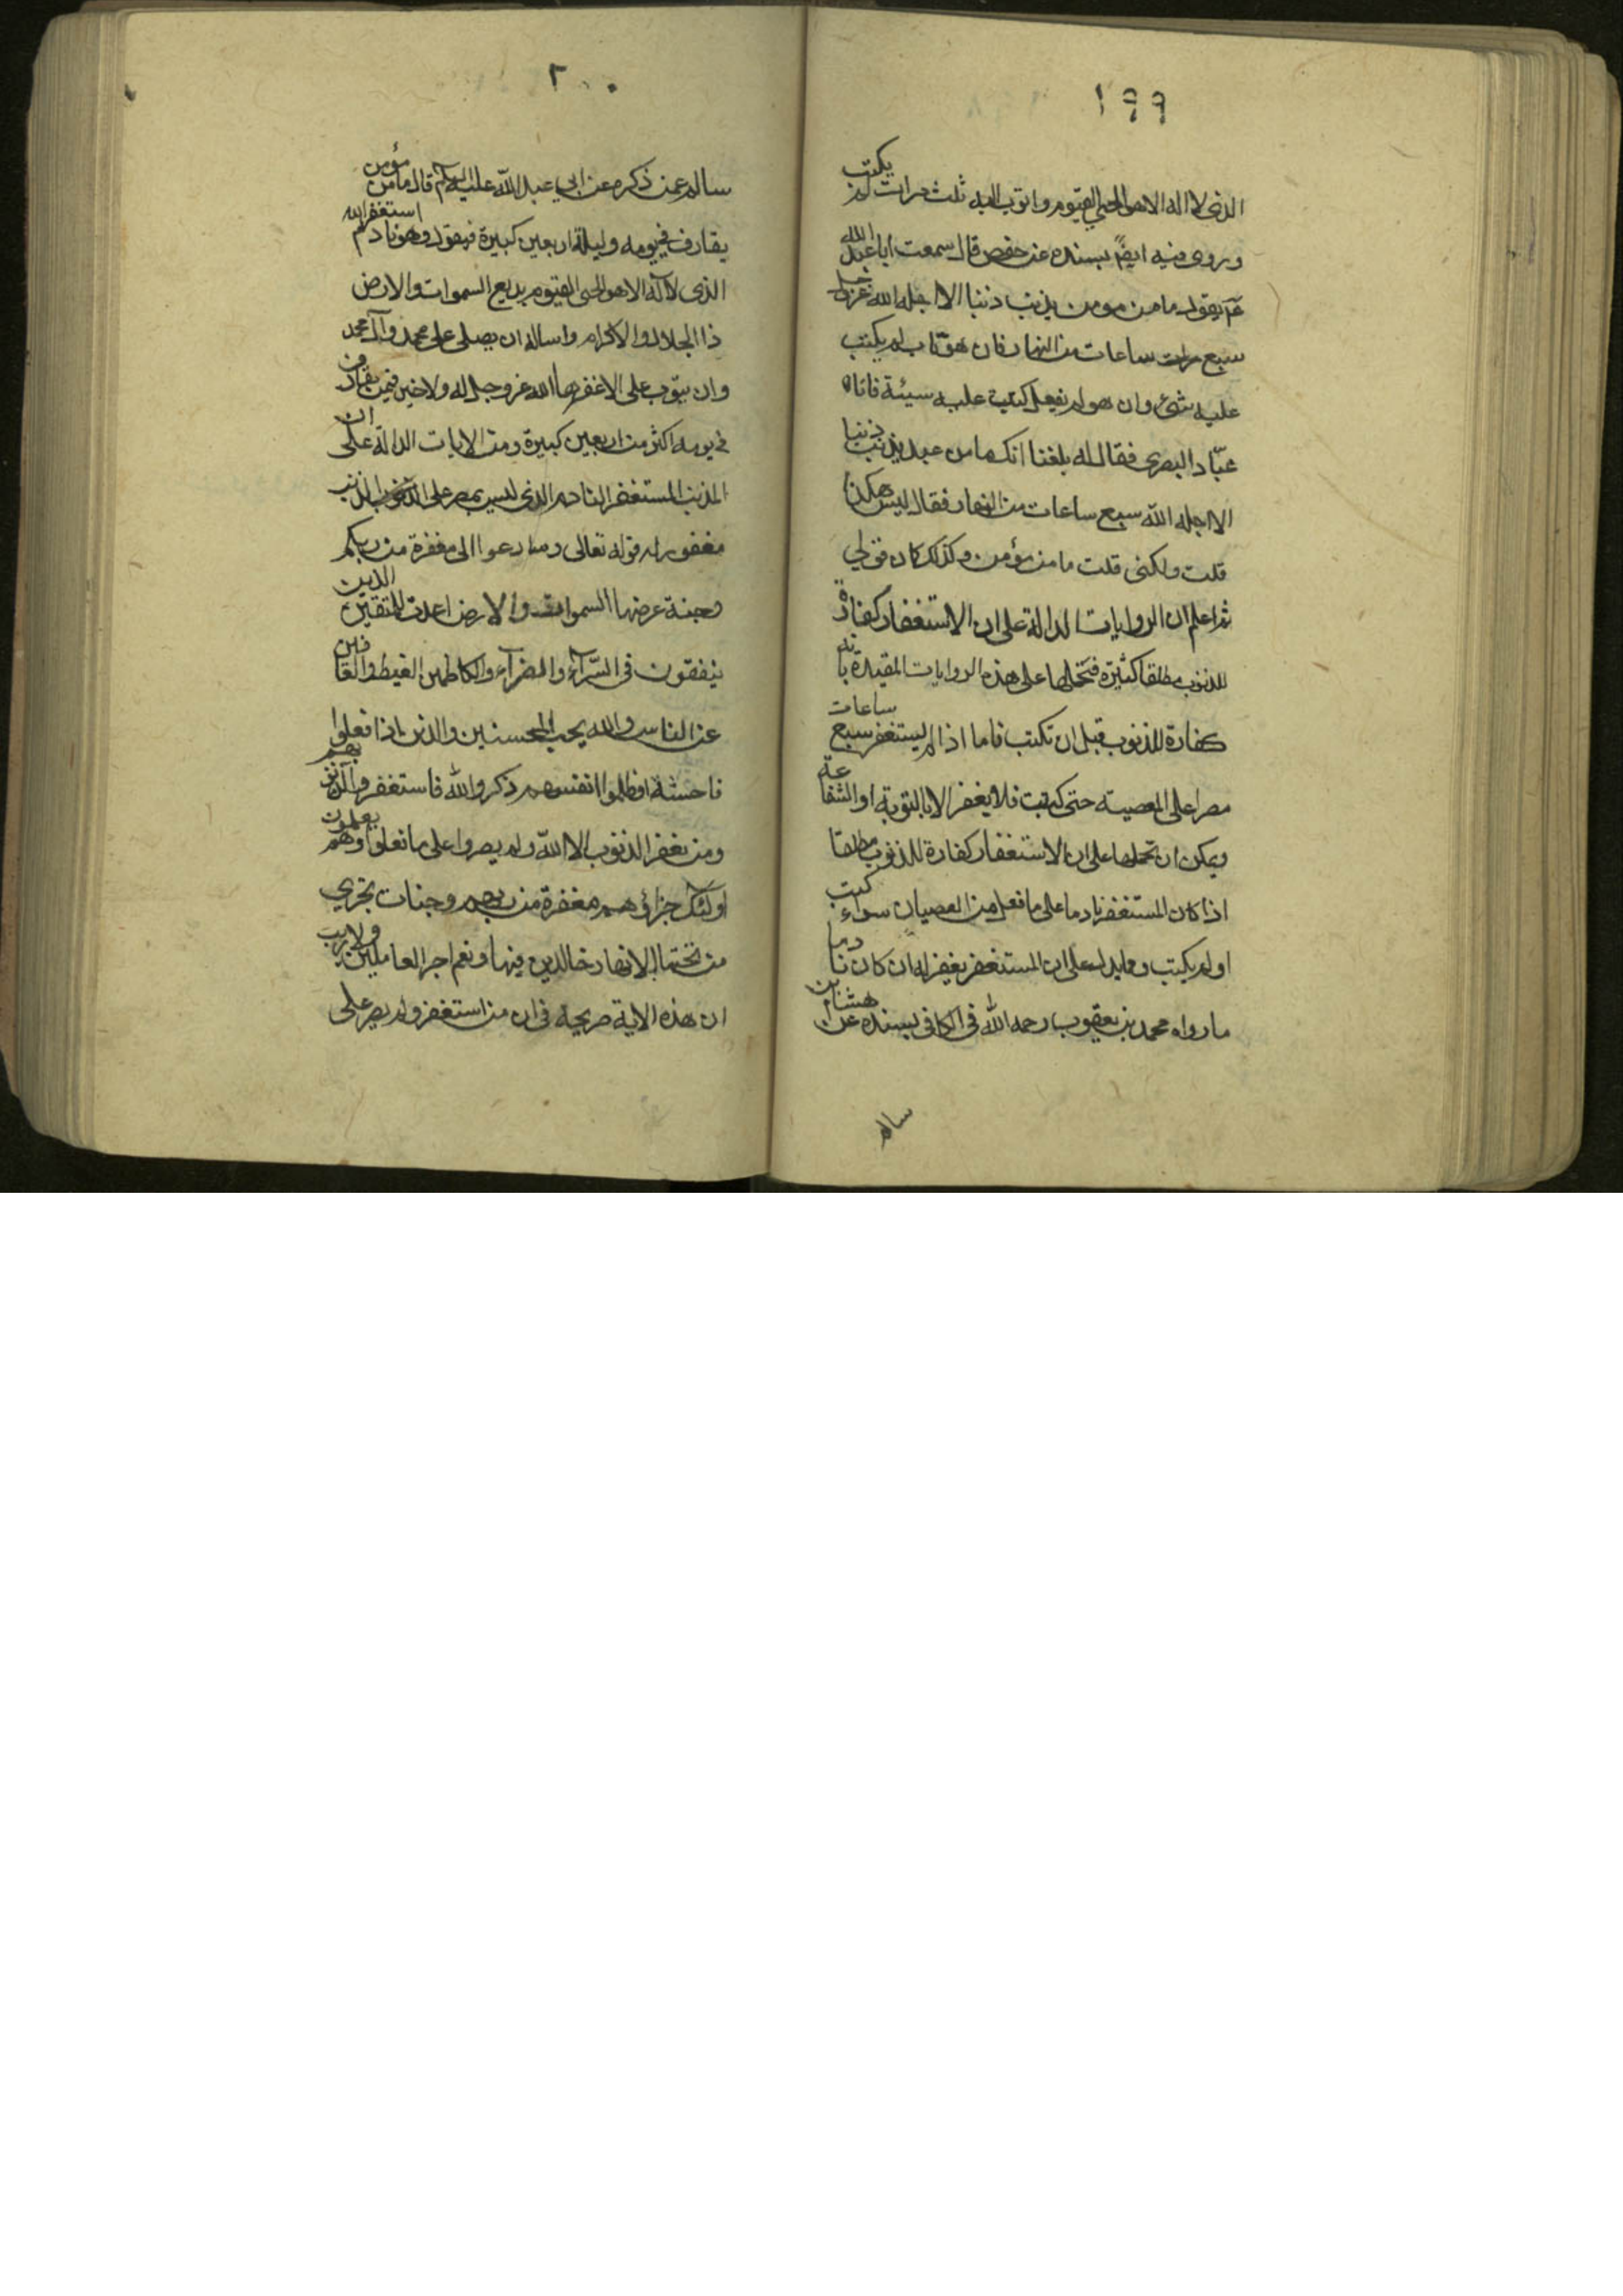 ١٩٩
الذى لا اله الا هو الحي القيوم واتوب اليه ثلث مرات لم يكتب
وروى فيه ايضً بسنده عن حفص قال سمعت ابا عبد الله
عم يقول ما من مومن يذنب ذنبا الا اجله الله عز وجل
سبع ساعات من النهار فان هو تاب لم يكتب
عليه شئ وان هو لم يفعل كتبت عليه سيئة فاتاه
عبّاد البصرى فقال له بلغنا انك ما من عبد يذنب ذنبا
الا اجله الله سبع ساعات من النهار فقال ليس هكذا
قلت ولكنى قلت ما من مؤمن وكذلك كان قولي
ثم اعلم ان الروايات الدالة على ان الاستغفار كفارة
للذنوب مطلقا كثيرة فتحملها على هذه الروايات المقيدة بانه
كفارة للذنوب قبل ان تكتب فاما اذا لم يستغفر سبع ساعات
مصرا على المعصيته حتى كتبت فلا يغفر الا بالتوبة او الشفاعة
ويمكن ان تحملها على ان الاستغفار كفارة للذنوب مطلقا
اذا كان المستغفر نادما على ما فعل من العصيان سواء كتب
او لم يكتب ومما يدل على ان المستغفر يغفر له ان كان نادما
ما رواه محمد بن يعقوب رحمه الله فى الكافى بسنده عن هشام بن
سالم
٢٠٠
سالم عمن ذكره عن ابي عبد الله عليه السلام قال ما من مؤمن
يقارف في يومه وليلة اربعين كبيرة فيقول وهو نادم استغفر الله
الذى لا اله الا هو الحى القيوم بديع السموات والارض
ذا الجلال والاكرام واساله ان يصلى على محمد وآل محمد
وان يتوب على الا غفرها الله عز وجل له ولا خير فيمن يقارف
في يومه اكثر من اربعين كبيرة ومن الايات الدالة على ان
المذنب المستغفر النادم الذى ليس بمصر على الذنب
مغفور له قوله تعالى وسارعوا الى مغفرة من ربكم
وجنة عرضها السموات والارض اعدت للمتقين الذين
ينفقون فى السّرآء والضرآء والكاظمين الغيظ والعافين
عن الناس والله يحب المحسنين والذين اذا فعلوا
فاحشة او ظلموا انفسهم ذكروا الله فاستغفروا لذنوبهم
ومن يغفر الذنوب الا الله ولم يصروا على ما فعلوا وهم يعلمون
اولئك جزاؤهم مغفرة من ربهم وجنات تجري
من تحتها الانهار خالدين فيها ونعم اجر العاملين ولا ريب
ان هذه الاية صريحة فى ان من استغفر ولم يصر على